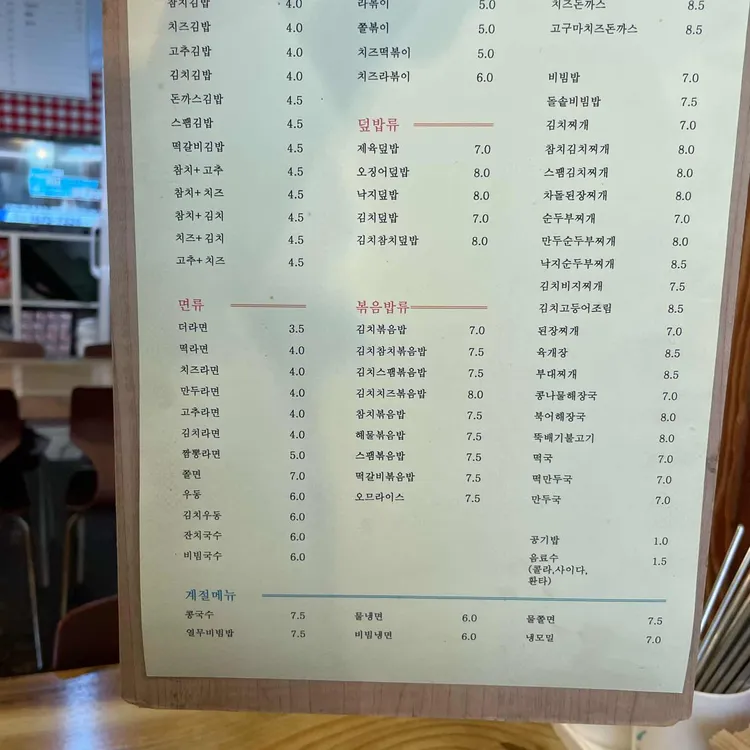 참치김밥 4.0
치즈김밥 4.0
고추김밥 4.0
김치김밥 4.0
돈까스김밥 4.5
스팸김밥 4.5
떡갈비김밥 4.5
참치+고추 4.5
참치+치즈 4.5
참치+김치 4.5
치즈+김치 4.5
고추+치즈 4.5
면류
더라면 3.5
떡라면 4.0
치즈라면 4.0
만두라면 4.0
고추라면 4.0
김치라면 4.0
짬뽕라면 5.0
쫄면 7.0
우동 6.0
김치우동 6.0
잔치국수 6.0
비빔국수 6.0
라볶이 5.0
쫄볶이 5.0
치즈떡볶이 5.0
치즈라볶이 6.0
덮밥류
제육덮밥 7.0
오징어덮밥 8.0
낙지덮밥 8.0
김치덮밥 7.0
김치참치덮밥 8.0
볶음밥류
김치볶음밥 7.0
김치참치볶음밥 7.5
김치스팸볶음밥 7.5
김치치즈볶음밥 8.0
참치볶음밥 7.5
해물볶음밥 7.5
스팸볶음밥 7.5
떡갈비볶음밥 7.5
오므라이스 7.5
치즈돈까스 8.5
고구마치즈돈까스 8.5
비빔밥 7.0
돌솥비빔밥 7.5
김치찌개 7.0
참치김치찌개 8.0
스팸김치찌개 8.0
차돌된장찌개 8.0
순두부찌개 7.0
만두순두부찌개 8.0
낙지순두부찌개 8.5
김치비지찌개 7.5
김치고등어조림 8.5
된장찌개 7.0
육개장 8.5
부대찌개 8.5
콩나물해장국 7.0
북어해장국 8.0
뚝배기불고기 8.0
떡국 7.0
떡만두국 7.0
만두국 7.0
공기밥 1.0
음료수 1.5
(콜라,사이다,
환타)
계절메뉴
콩국수 7.5
열무비빔밥 7.5
물냉면 6.0
비빔냉면 6.0
물쫄면 7.5
냉모밀 7.0